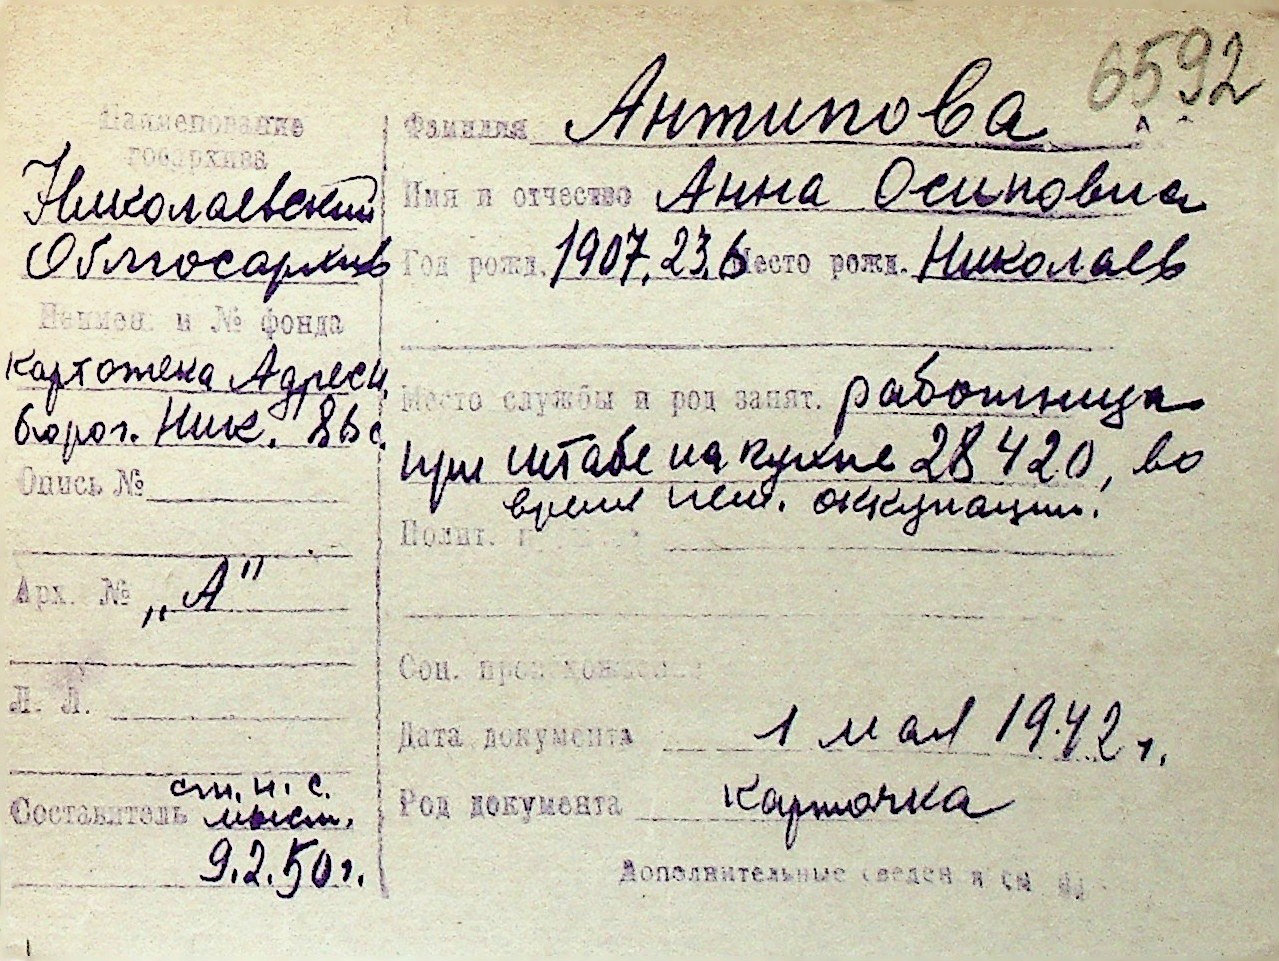 6592
Наименование
госархива
Николаевский
Облгосархив
Наимен. и № фонда
картотека Адресн.
бюро г. Ник.
Опись №
Арх. № „А"
Л. Л.
Составитель ст. н. с.
9.2.50 г.
Фамилия Антипова
Имя и отчество Анна Осиповна
Год рожд. 1907, 23.6 Место рожд. Николаев
Место службы и род занят. работница
при штабе на кухне 28420, во
время нем. оккупации.
Полит.
Соц. происхождение
Дата документа 1 мая 1942 г.
Род документа карточка
Дополнительные сведен